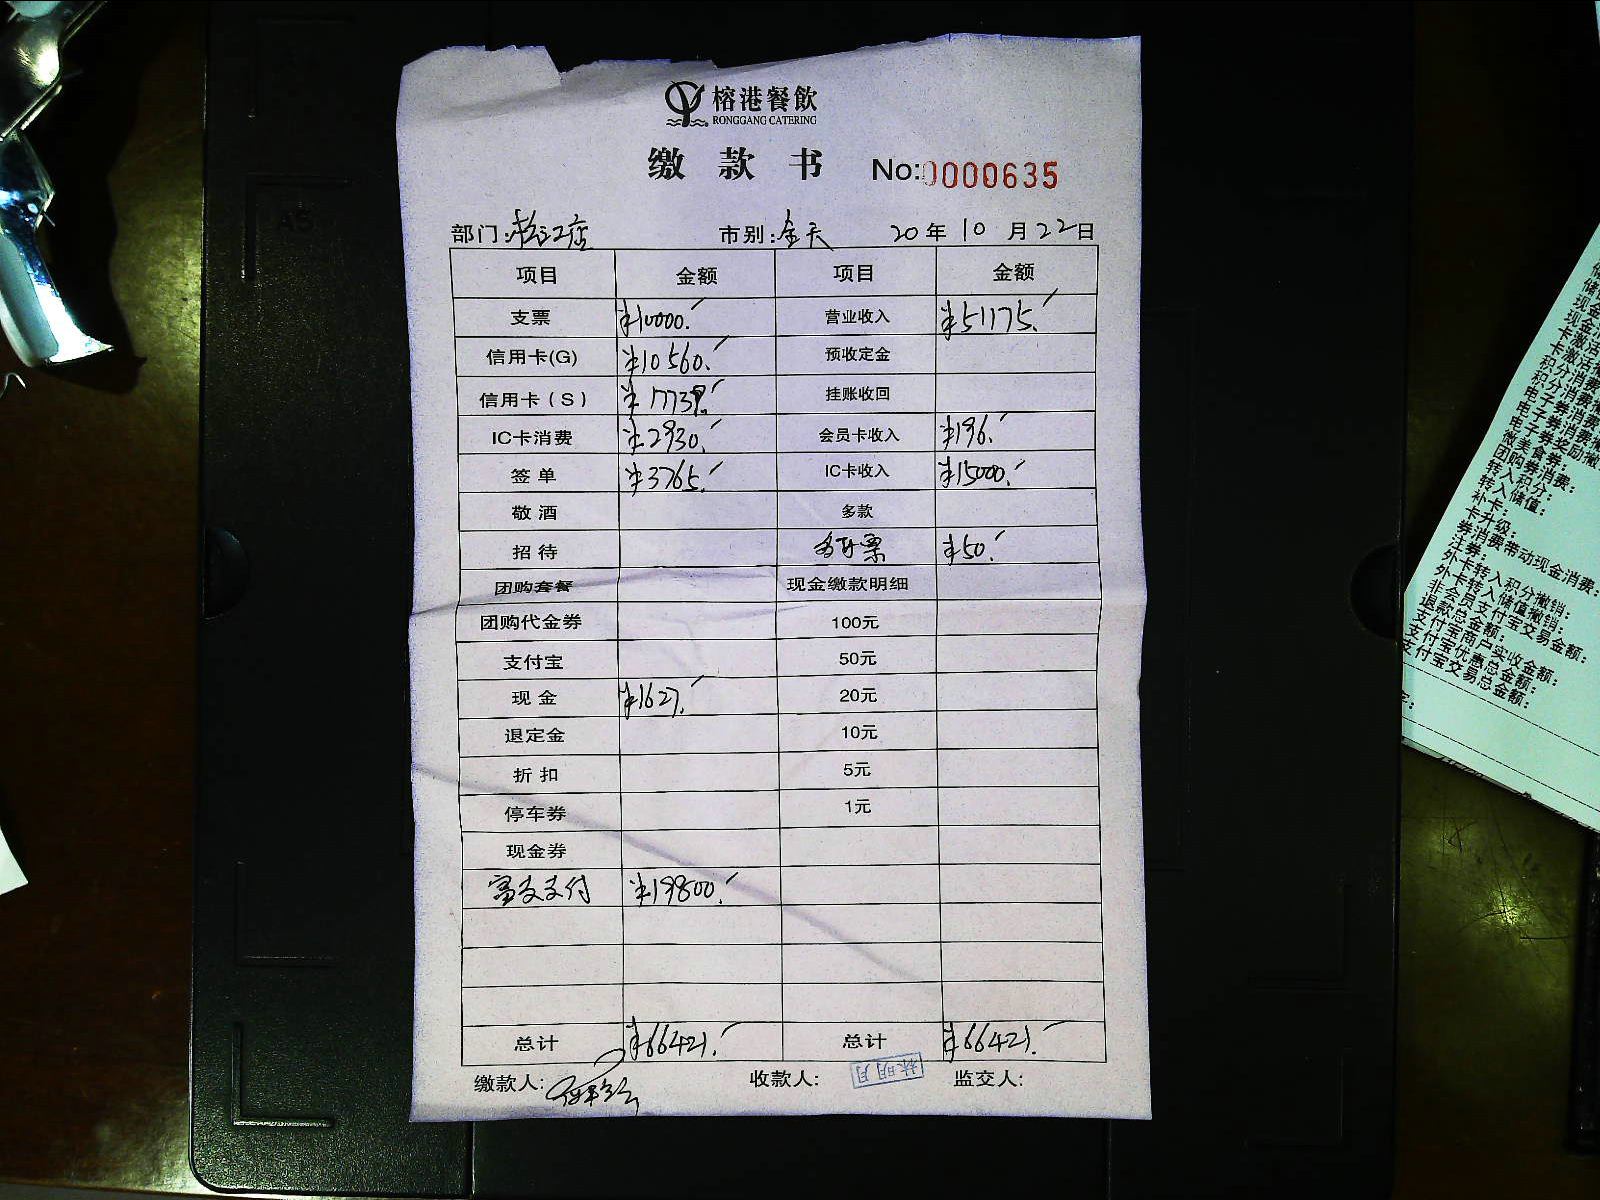 榕港餐飲
RONGGANG CATERING
缴款书 No:0000635
部门:松江店 市别:全天 20年10月22日
项目 金额 项目 金额
支票 ¥10000. 营业收入 ¥51175.
信用卡(G) ¥10560. 预收定金
信用卡(S) ¥17739. 挂账收回
IC卡消费 ¥2930. 会员卡收入 ¥196.
签单 ¥3765. IC卡收入 ¥15000.
敬酒 多款
招待 多开票 ¥50.
团购套餐 现金缴款明细
团购代金券 100元
支付宝 50元
现金 ¥1627. 20元
退定金 10元
折扣 5元
停车券 1元
现金券
富友支付 ¥19800.
总计 ¥66421. 总计 ¥66421.
缴款人: 收款人: 林明月 监交人:
电子券奖励撤
微美食券:
团购券消费:
转入积分:
转入储值:
补卡:
卡升级:
券消费带动现金消费:
注券:
外卡转入积分撤销:
外卡转入储值撤销:
非会员支付宝交易金额:
退款总金额:
支付宝商户实收金额:
支付宝优惠总金额:
支付宝交易总金额: